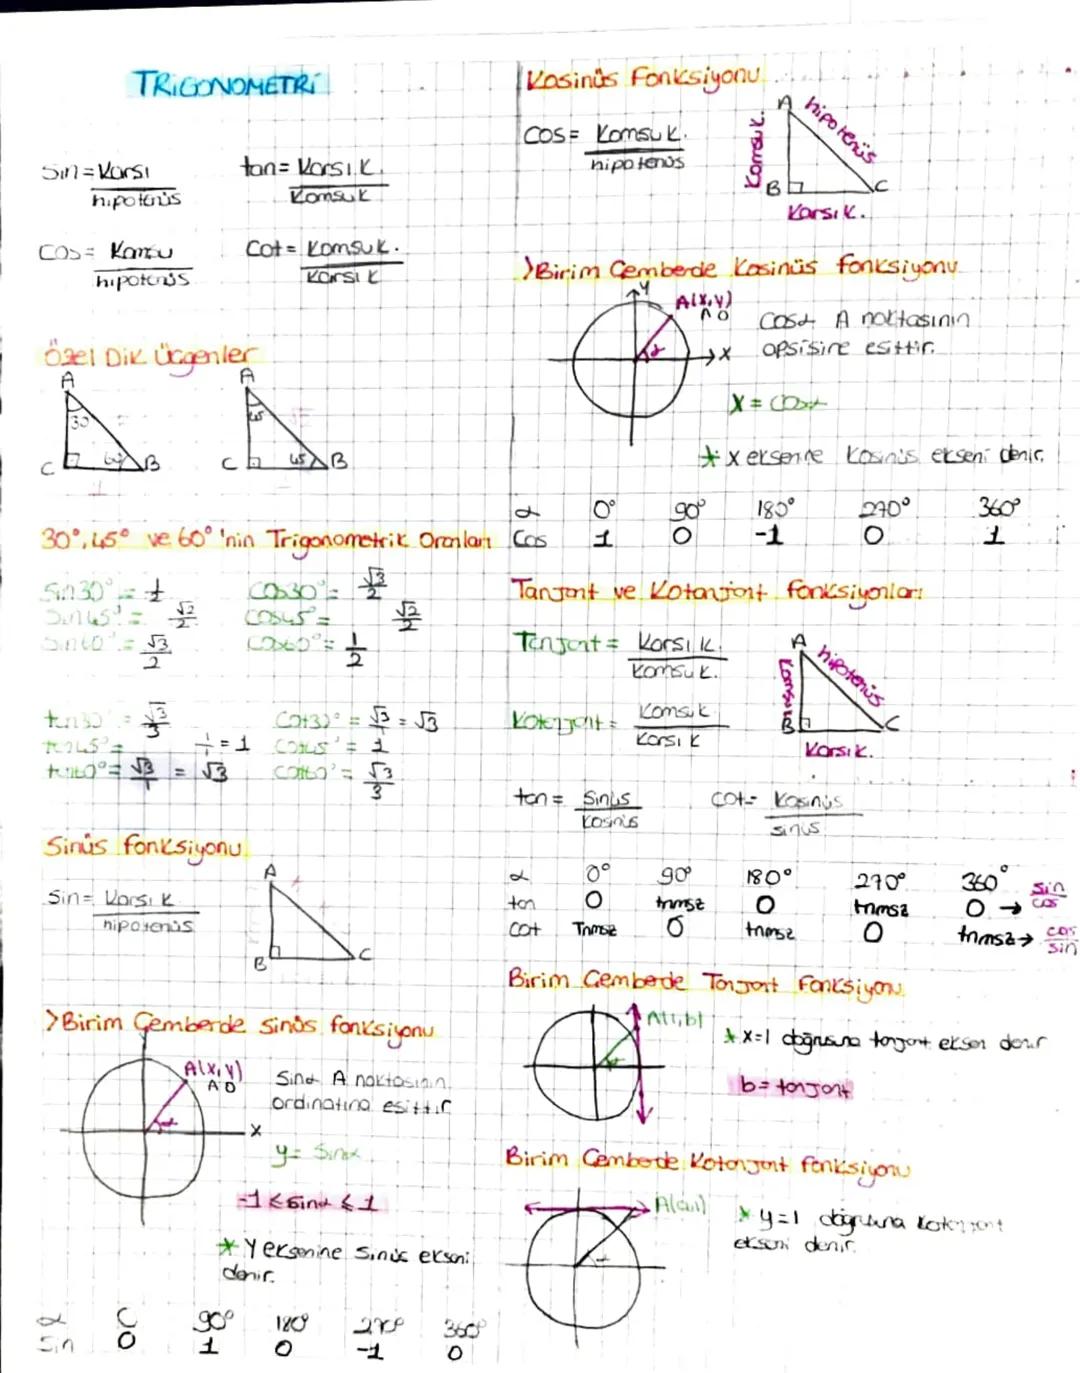 TRİGONOMETRİ
Sin = Karsı
hipotenüs
tan = Karsı K.
Komsu K
Cos = Komsu
hipotenüs
Cot = Komsu K.
Karsı K
Özel Dik Üçgenler
A
30
C
60
B
A
45
C
45
B
30°, 45° ve 60°'nin Trigonometrik Oranları
Sin30° = 1/2
Cos30° = √3/2
Sin45° = √2/2
Cos45° = √2/2
Sin60° = √3/2
Cos60° = 1/2
tan30° = √3/3
Cot30° = √3/1 = √3
tan45° = 1/1 = 1
Cot45° = 1
tan60° = √3/1 = √3
Cot60° = √3/3
Sinüs fonksiyonu
Sin = Karsı K
hipotenüs
A
B
C
>Birim Çemberde sinüs fonksiyonu
A(x,y)
A O
x
Sinα A noktasının
ordinatına esittir
y = Sinα
-1 ≤ sinα ≤ 1
* Y eksenine sinüs ekseni
denir.
α 0 90° 180° 270° 360°
Sin 0 1 0 -1 0
Kosinüs Fonksiyonu
COS = Komsu K.
hipotenüs
A
hipotenüs
Komsu K.
B
C
Karsı K.
>Birim Çemberde Kosinüs fonksiyonu
y
A(x,y)
A O
α
x
Cosα A noktasının
apsisine esittir.
X = cosα
* x eksenine kosinüs ekseni denir.
α 0° 90° 180° 270° 360°
Cos 1 0 -1 0 1
Tanjant ve Kotanjant fonksiyonları
Tanjant = Karsı K.
Komsu K.
Kotanjant = Komsu K
Karsı K
A
hipotenüs
Komsu K
B
C
Karsı K.
tan = Sinüs
Kosinüs
cot = Kosinüs
sinüs
α 0° 90° 180° 270° 360°
tan 0 tnmsz 0 tnmsz 0 → sin/cos
cot Tnmsz 0 tnmsz 0 tnmsz → cos/sin
Birim Çemberde Tanjant Fonksiyonu
A(1,b)
* x=1 doğrusuna tanjant eksen denir
b = tanjant
Birim Çemberde Kotanjant fonksiyonu
A(a,1)
* y=1 doğrusuna kotanjant
ekseni denir.